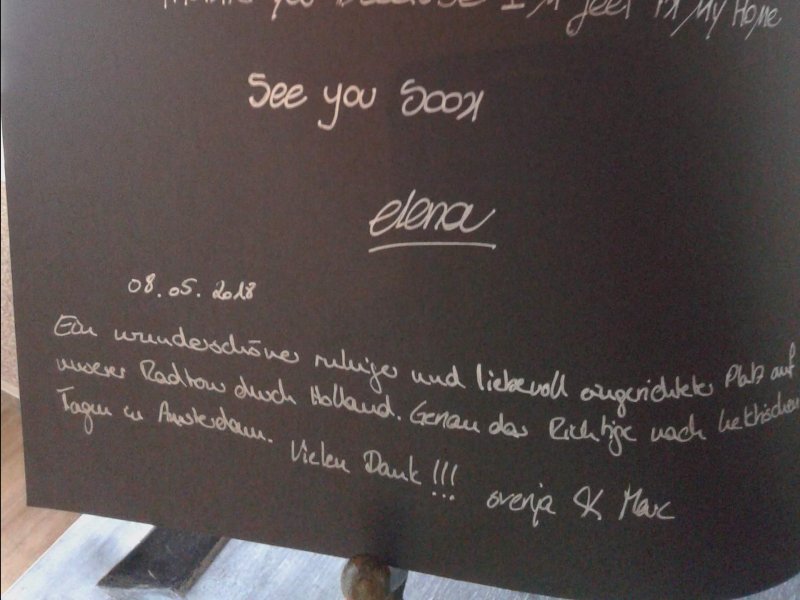 Thank you because I'm feel in my Home
See you soon
elena
08.05.2018
Ein wunderschöner ruhiger und liebevoll eingerichteter Platz auf
unserer Radtour durch Holland. Genau das Richtige nach hektischen
Tagen in Amsterdam. Vielen Dank!!!
Svenja & Marc